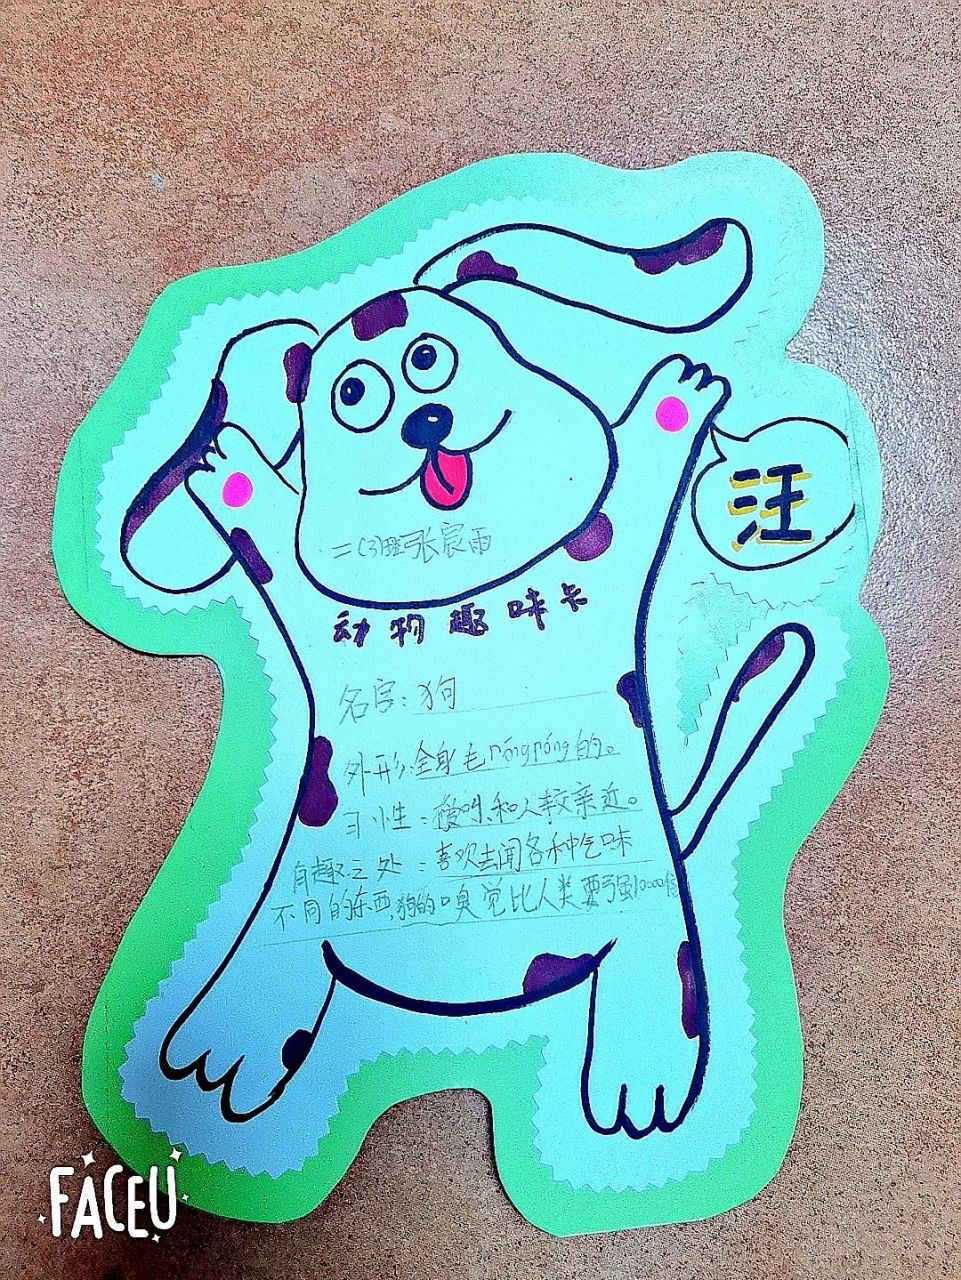 汪
二(3)班张宸雨
动物趣味卡
名字:狗
外形:全身毛róngróng的。
习性:爱叫,和人较亲近。
有趣之处:喜欢去闻各种气味
不同的东西,狗的嗅觉比人类要强10000倍
FACEU